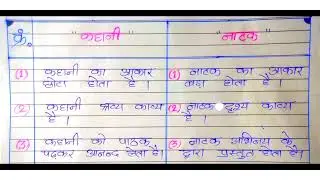 क्रं. "कहानी" "नाटक"
(1) कहानी का आकार (1) नाटक का आकार
छोटा होता है। बड़ा होता है।
(2) कहानी श्रव्य काव्य (2) नाटक दृश्य काव्य
है। है।
(3) कहानी को पाठक (3) नाटक अभिनय के
पढ़कर आनन्द लेता है। द्वारा प्रस्तुत होता है।